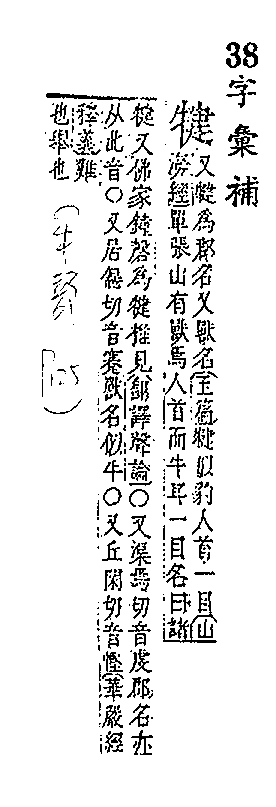 38
字彙補
犍 又犍為郡名又獸名玉篇犍似豹人首一目山
海經單張山有獸焉人首而牛耳一目名曰諸
犍又佛家鐘磬為犍椎見翻譯聲論〇又渠焉切音虔郡名亦
从此音〇又居偃切音蹇獸名似牛〇又丘閑切音慳華嚴經
釋義難
也舉也